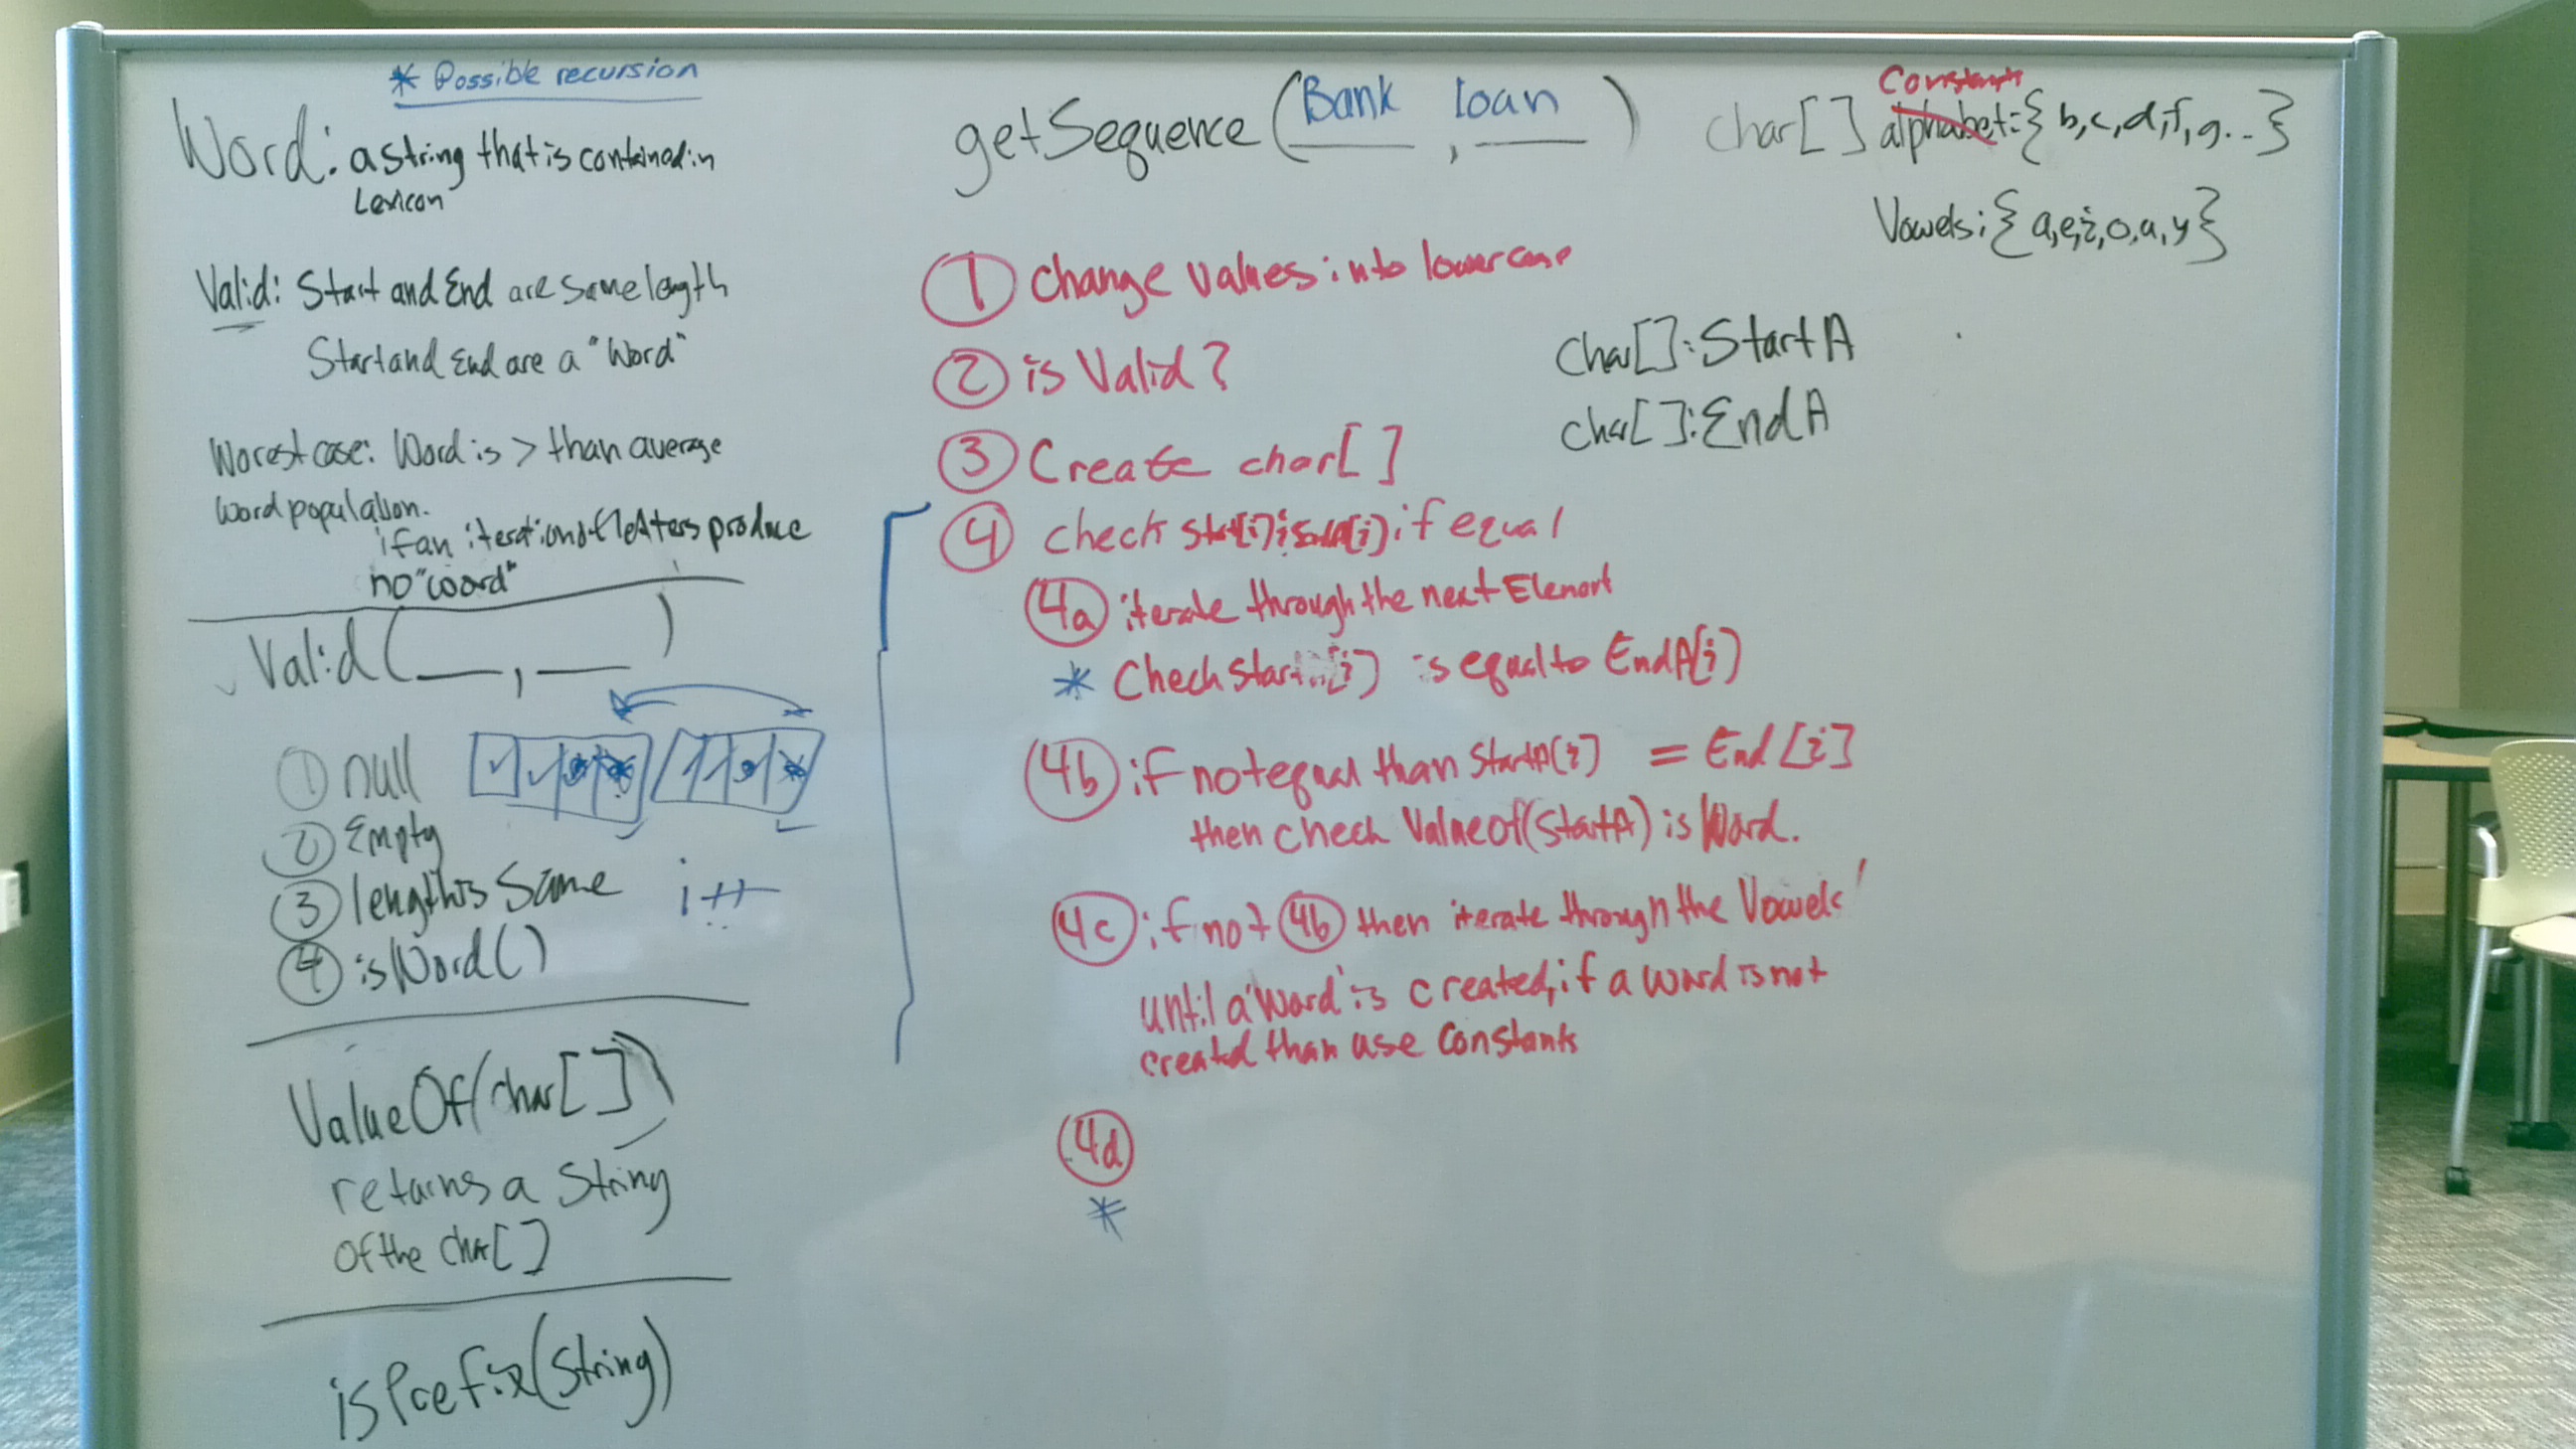 * Possible recursion
Word: a string that is contained in
Lexicon
Valid: Start and End are same length
Start and End are a "Word"
Worest case: Word is > than average
word population.
if an iteration of letters produce
no "word"
Valid(___, ___)
1 null
2 Empty
3 length is Same
4 isWord()
i++
ValueOf(char[])
returns a String
of the char[]
isPrefix(String)
getSequence(Bank, loan)
1 Change values into lowercase
2 is Valid?
3 Create char[]
4 check if equal
4a iterate through the next Element
* Check Start [i] is equal to EndA[i]
4b if not equal than StartA[i] = End[i]
then check Valueof(StartA) is Word.
4c if not 4b then iterate through the Vowels
until a 'Word' is created, if a word is not
created than use Constants
4d
*
Constants
char[] alphabet: {b,c,d,f,g...}
Vowels: {a,e,i,o,u,y}
Char[]: StartA
char[]: EndA